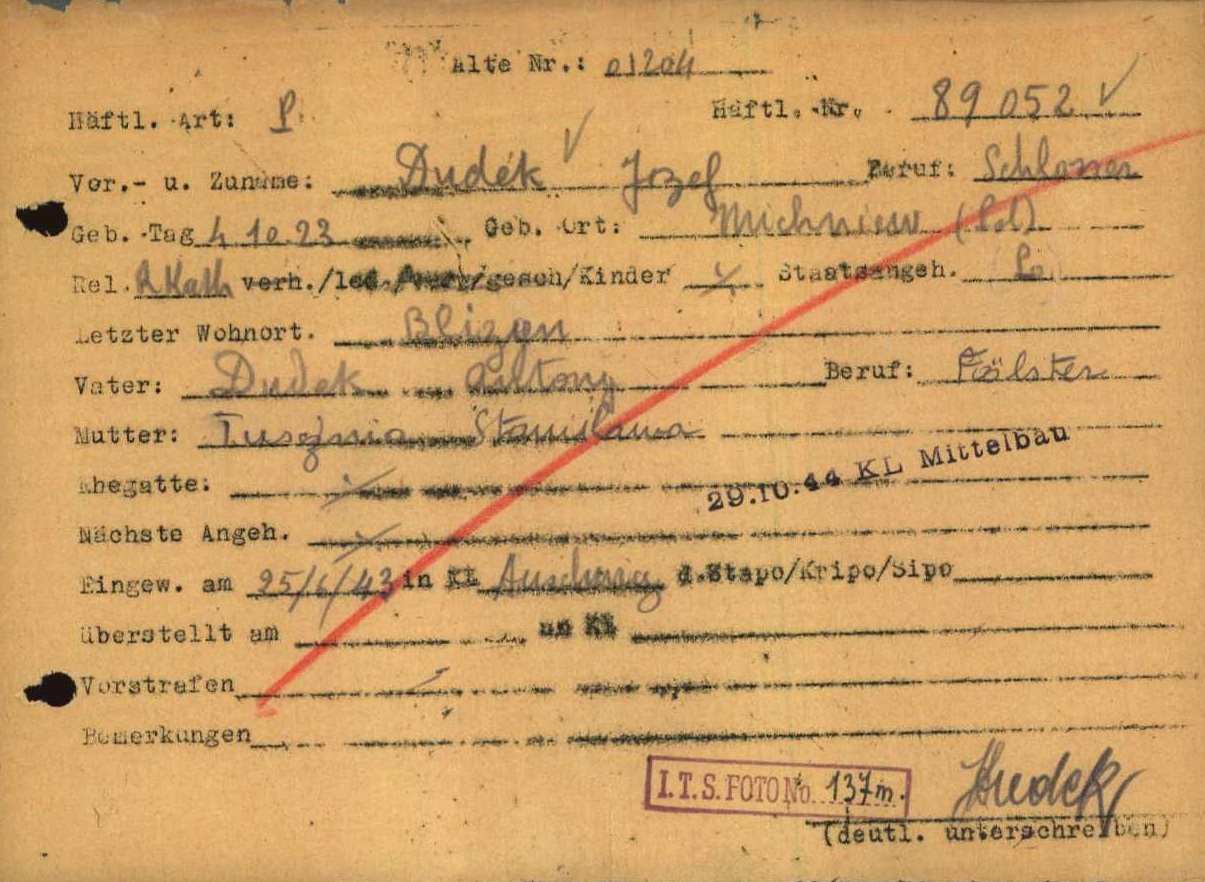 Alte Nr.: 01204
Häftl. Art: P. Häftl. Nr. 89052
Vor.- u. Zuname: Dudek Jozef Beruf: Schlosser
Geb. Tag 4 10.23 Geb. Ort: Michniew (Pol)
Rel. R Kath verh./led./verw/gesch/Kinder Staatsangeh. Po
Letzter Wohnort. Blizyn
Vater: Dudek Antony Beruf: Fölster
Mutter: Stanislawa
Ehegatte:
29.10.44 KL Mittelbau
Nächste Angeh.
Eingew. am 25/6/43 in KL Auschwitz d.Stapo/Kripo/Sipo
überstellt am an KL
Vorstrafen
Bemerkungen
I.T.S. FOTO No. 137m.
JDudek
(deutl. unterschreiben)